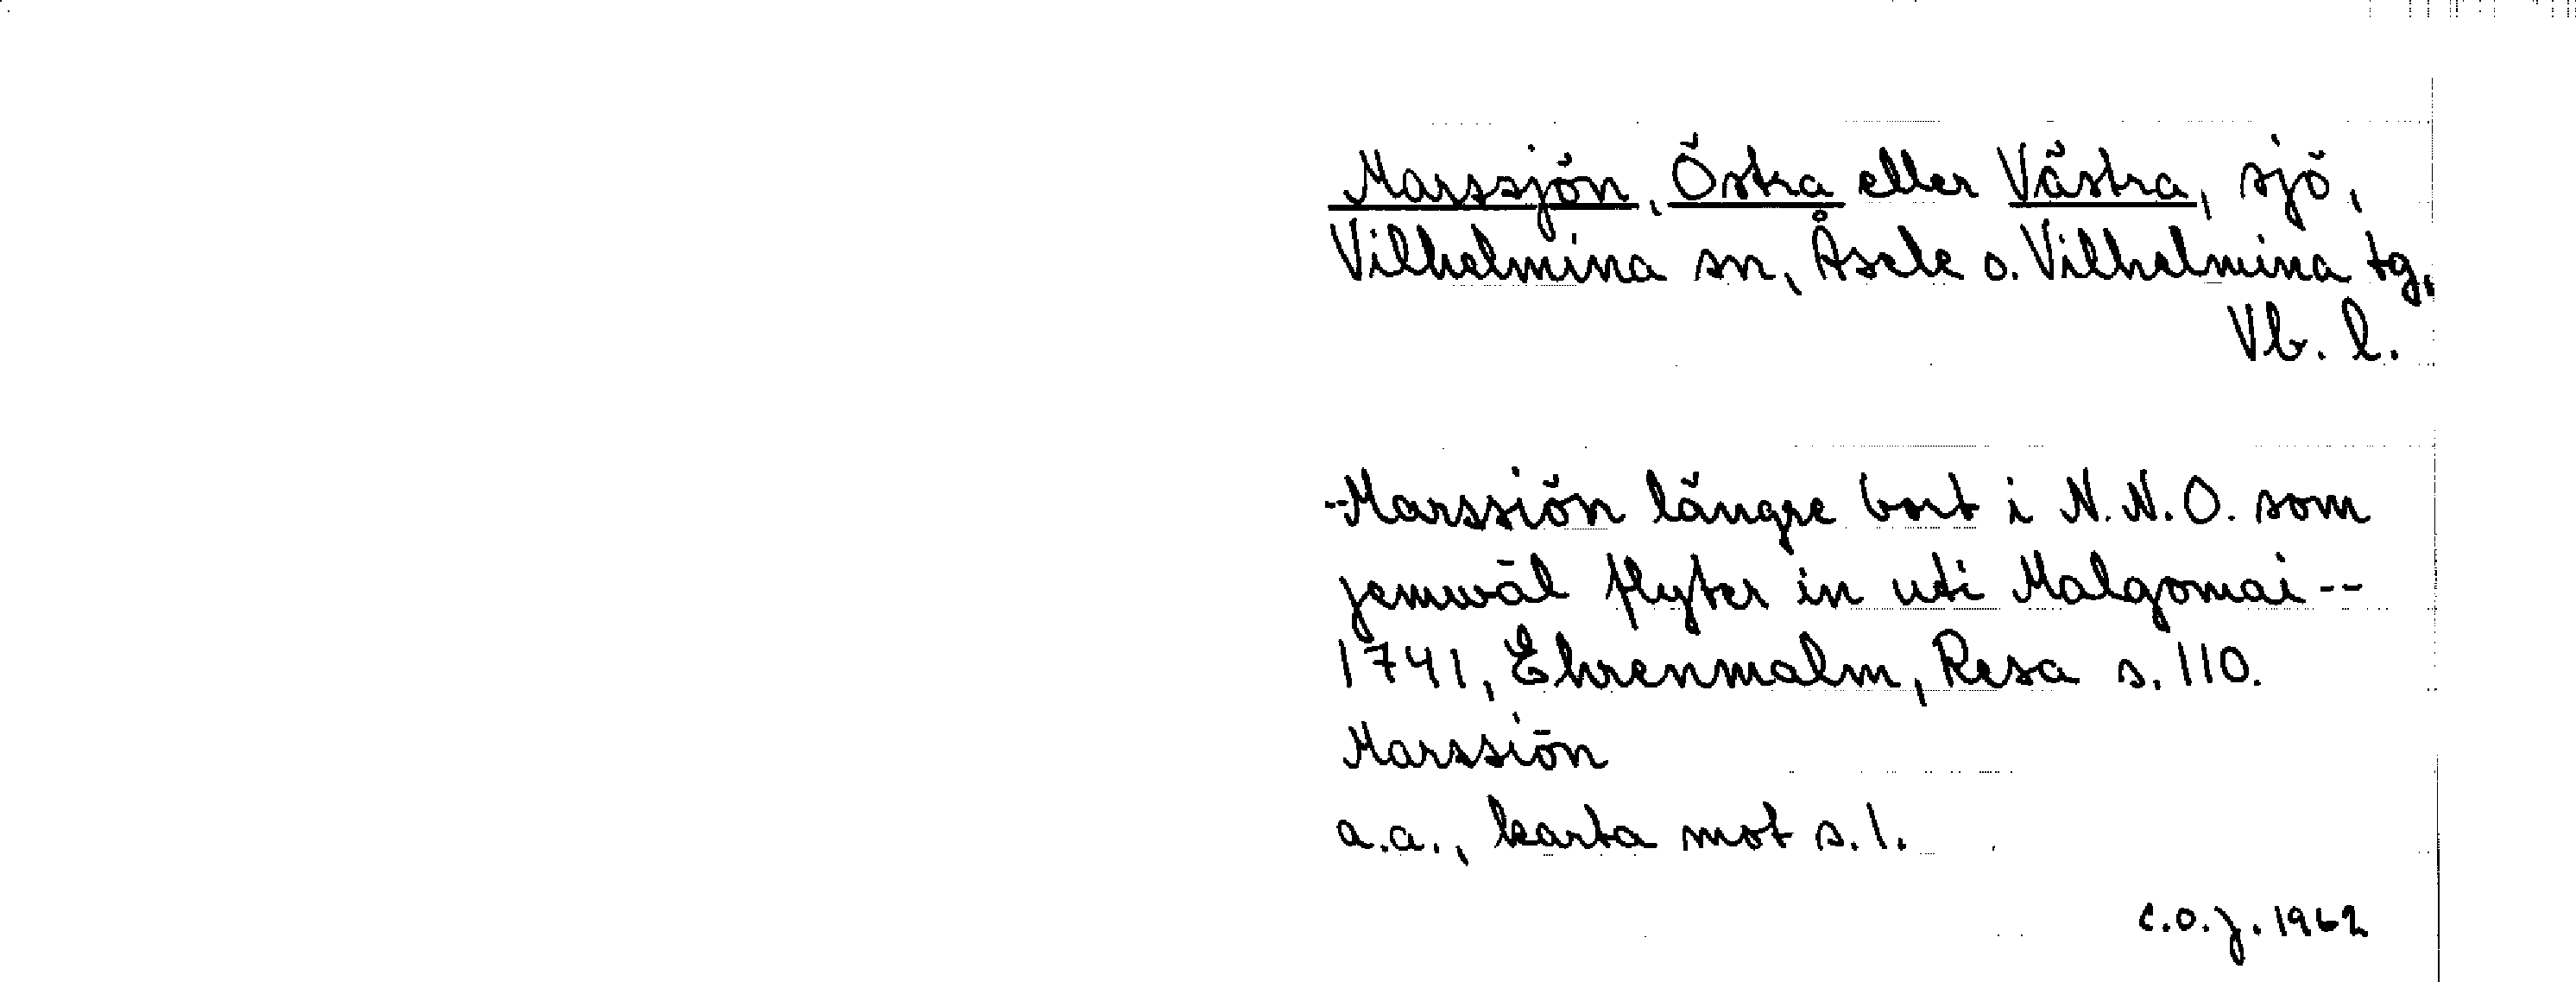 Marssjön, Östra eller Västra, sjö,
Vilhelmina sn, Åsele o. Vilhelmina tg,
Vb. l.
--Marssiön längre bort i N.N.O. som
jemwäl flyter in uti Malgomai--
1741, Ehrenmalm, Resa s. 110.
Marssiön
a.a., karta mot s. 1.
C.O.J. 1962